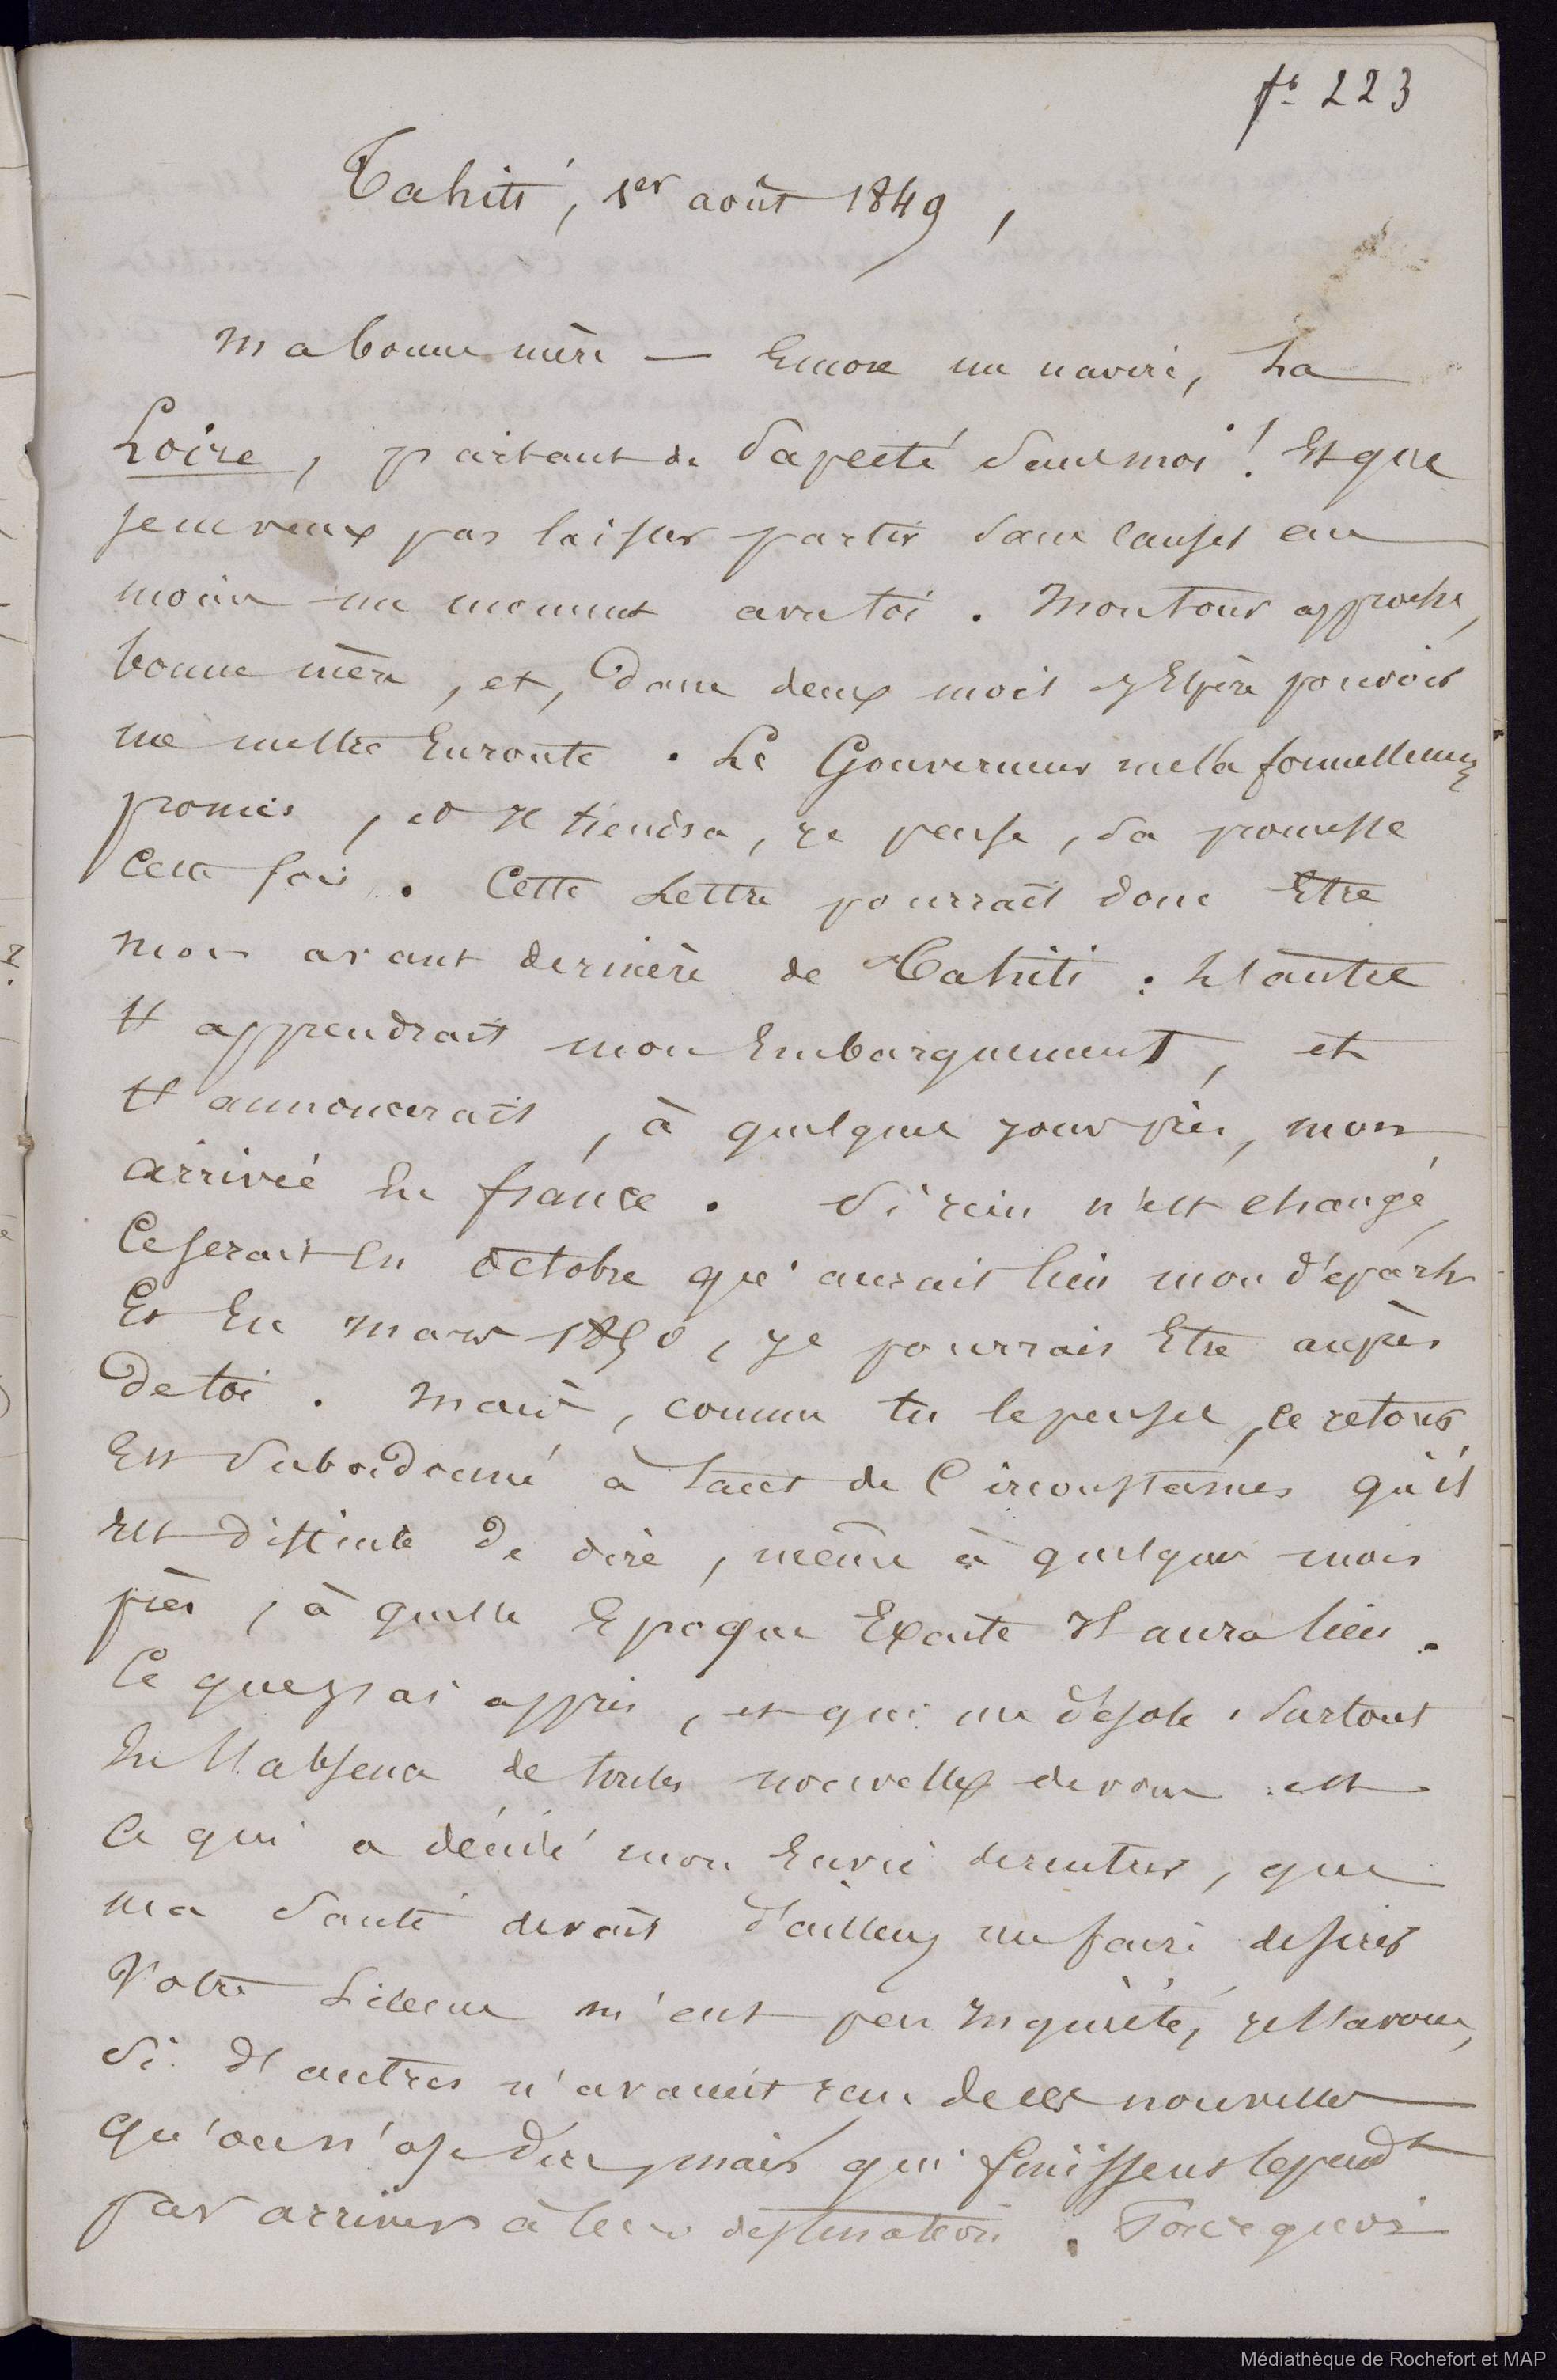 fo 223
Tahiti, 1er août 1849,
Ma bonne mère — Encore un navire, La
Loire, partant de Papeete sans moi ! Et que
je ne veux pas laisser partir sans causer au
moins un moment avec toi. Mon tour approche,
bonne mère, et, dans deux mois j'espère pouvoir
me mettre en route. Le Gouverneur me l'a formellement
promis, et il tiendra, je pense, sa promesse
cette fois. Cette Lettre pourrait donc être
mon avant dernière de Tahiti : L'autre
t'apprendrait mon embarquement, et
t'annoncerait, à quelques jours près, mon
arrivée en france. Si rien n'est changé,
Ce serait en octobre qu'aurait lieu mon départ
Et En mars 1850, je pourrais Etre auprès
de toi. Mais, comme tu le penses, ce retour
Est subordonné à tant de Circonstances qu'il
est difficile de dire, même à quelques mois
près, à quelle Epoque Exacte Il aura lieu.
Ce que j'ai appris, et qui me désole, surtout
En l'absence de toutes nouvelles de vous est
Ce qui a décidé mon Envie de rentrer, que
ma santé devait d'ailleurs me faire desirer
Votre silence m'eut peu inquiété, je l'avoue,
si d'autres n'avaient reçu de ces nouvelles
qu'on n'ose dire, mais qui finissent cepend't
par arriver à leur destination. Pourquoi
Médiathèque de Rochefort et MAP